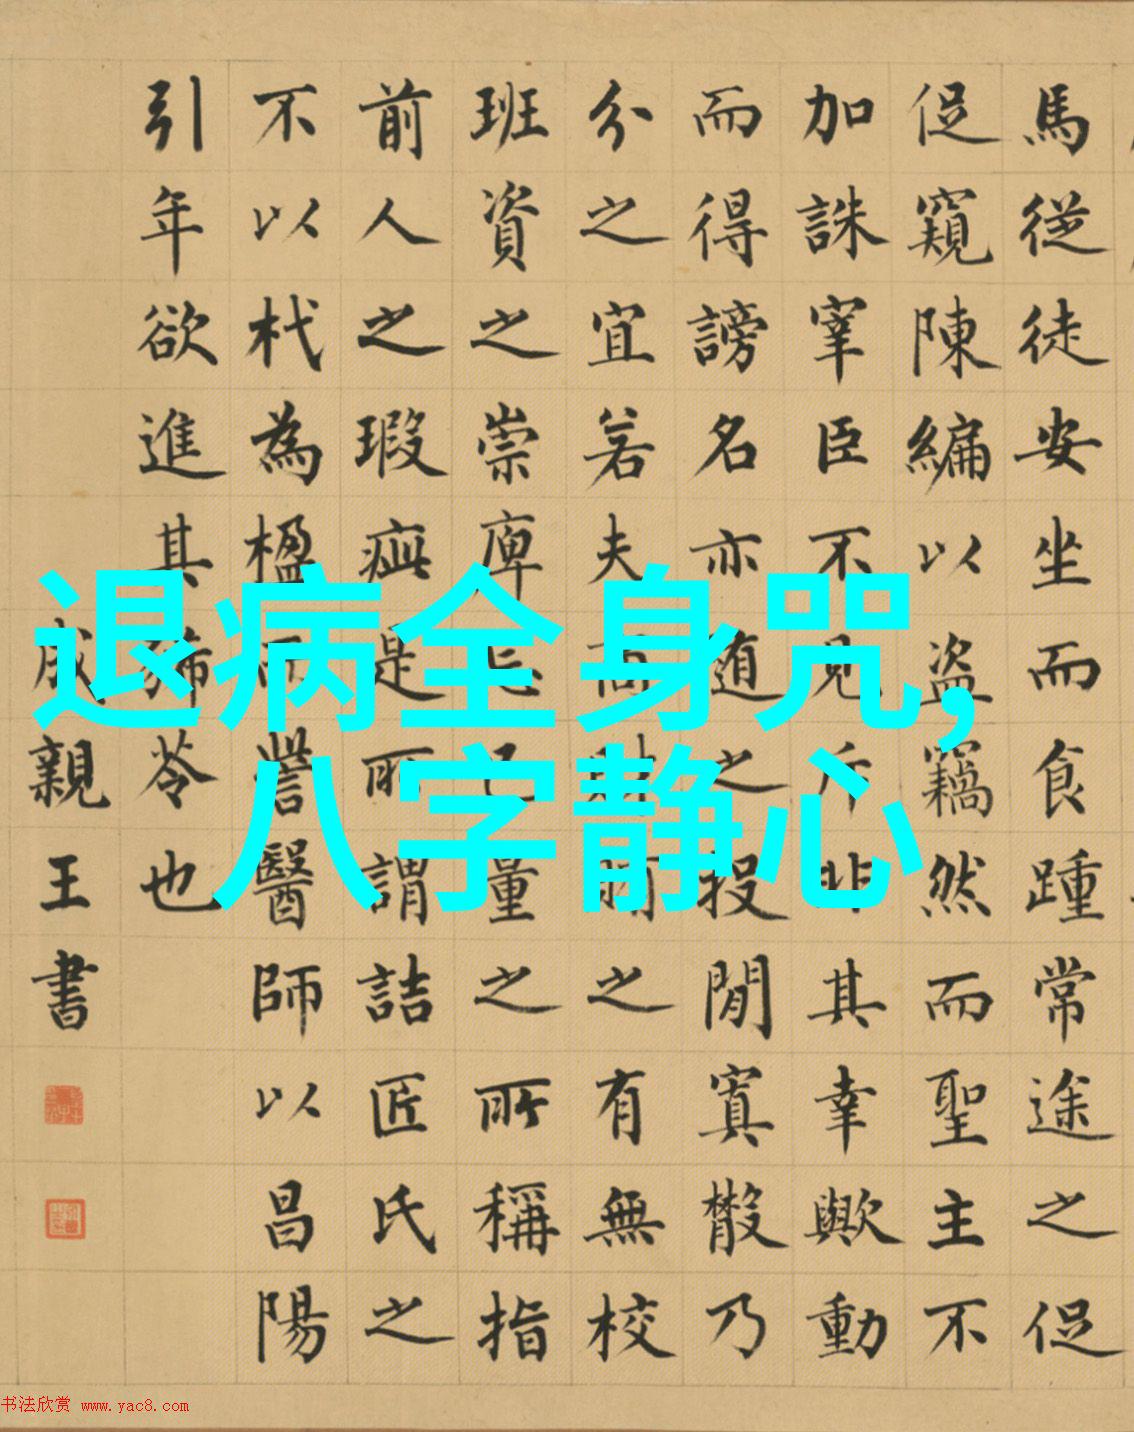 馬從徒安坐而食踵常途之促
促窺陳編以盗竊然而聖主不
加誅宰臣不見斥非其幸歟動
而得謗名亦随之投閒寘散乃
分之宜若夫商財賄之有無校
班資之崇庳忘己量之所稱指
前人之瑕疵是所謂詰匠氏之
不以杙為楹而訾醫師以昌陽
引年欲進其狶苓也
成親王書
退病全身咒,
八字静心
书法欣赏 www.yac8.com